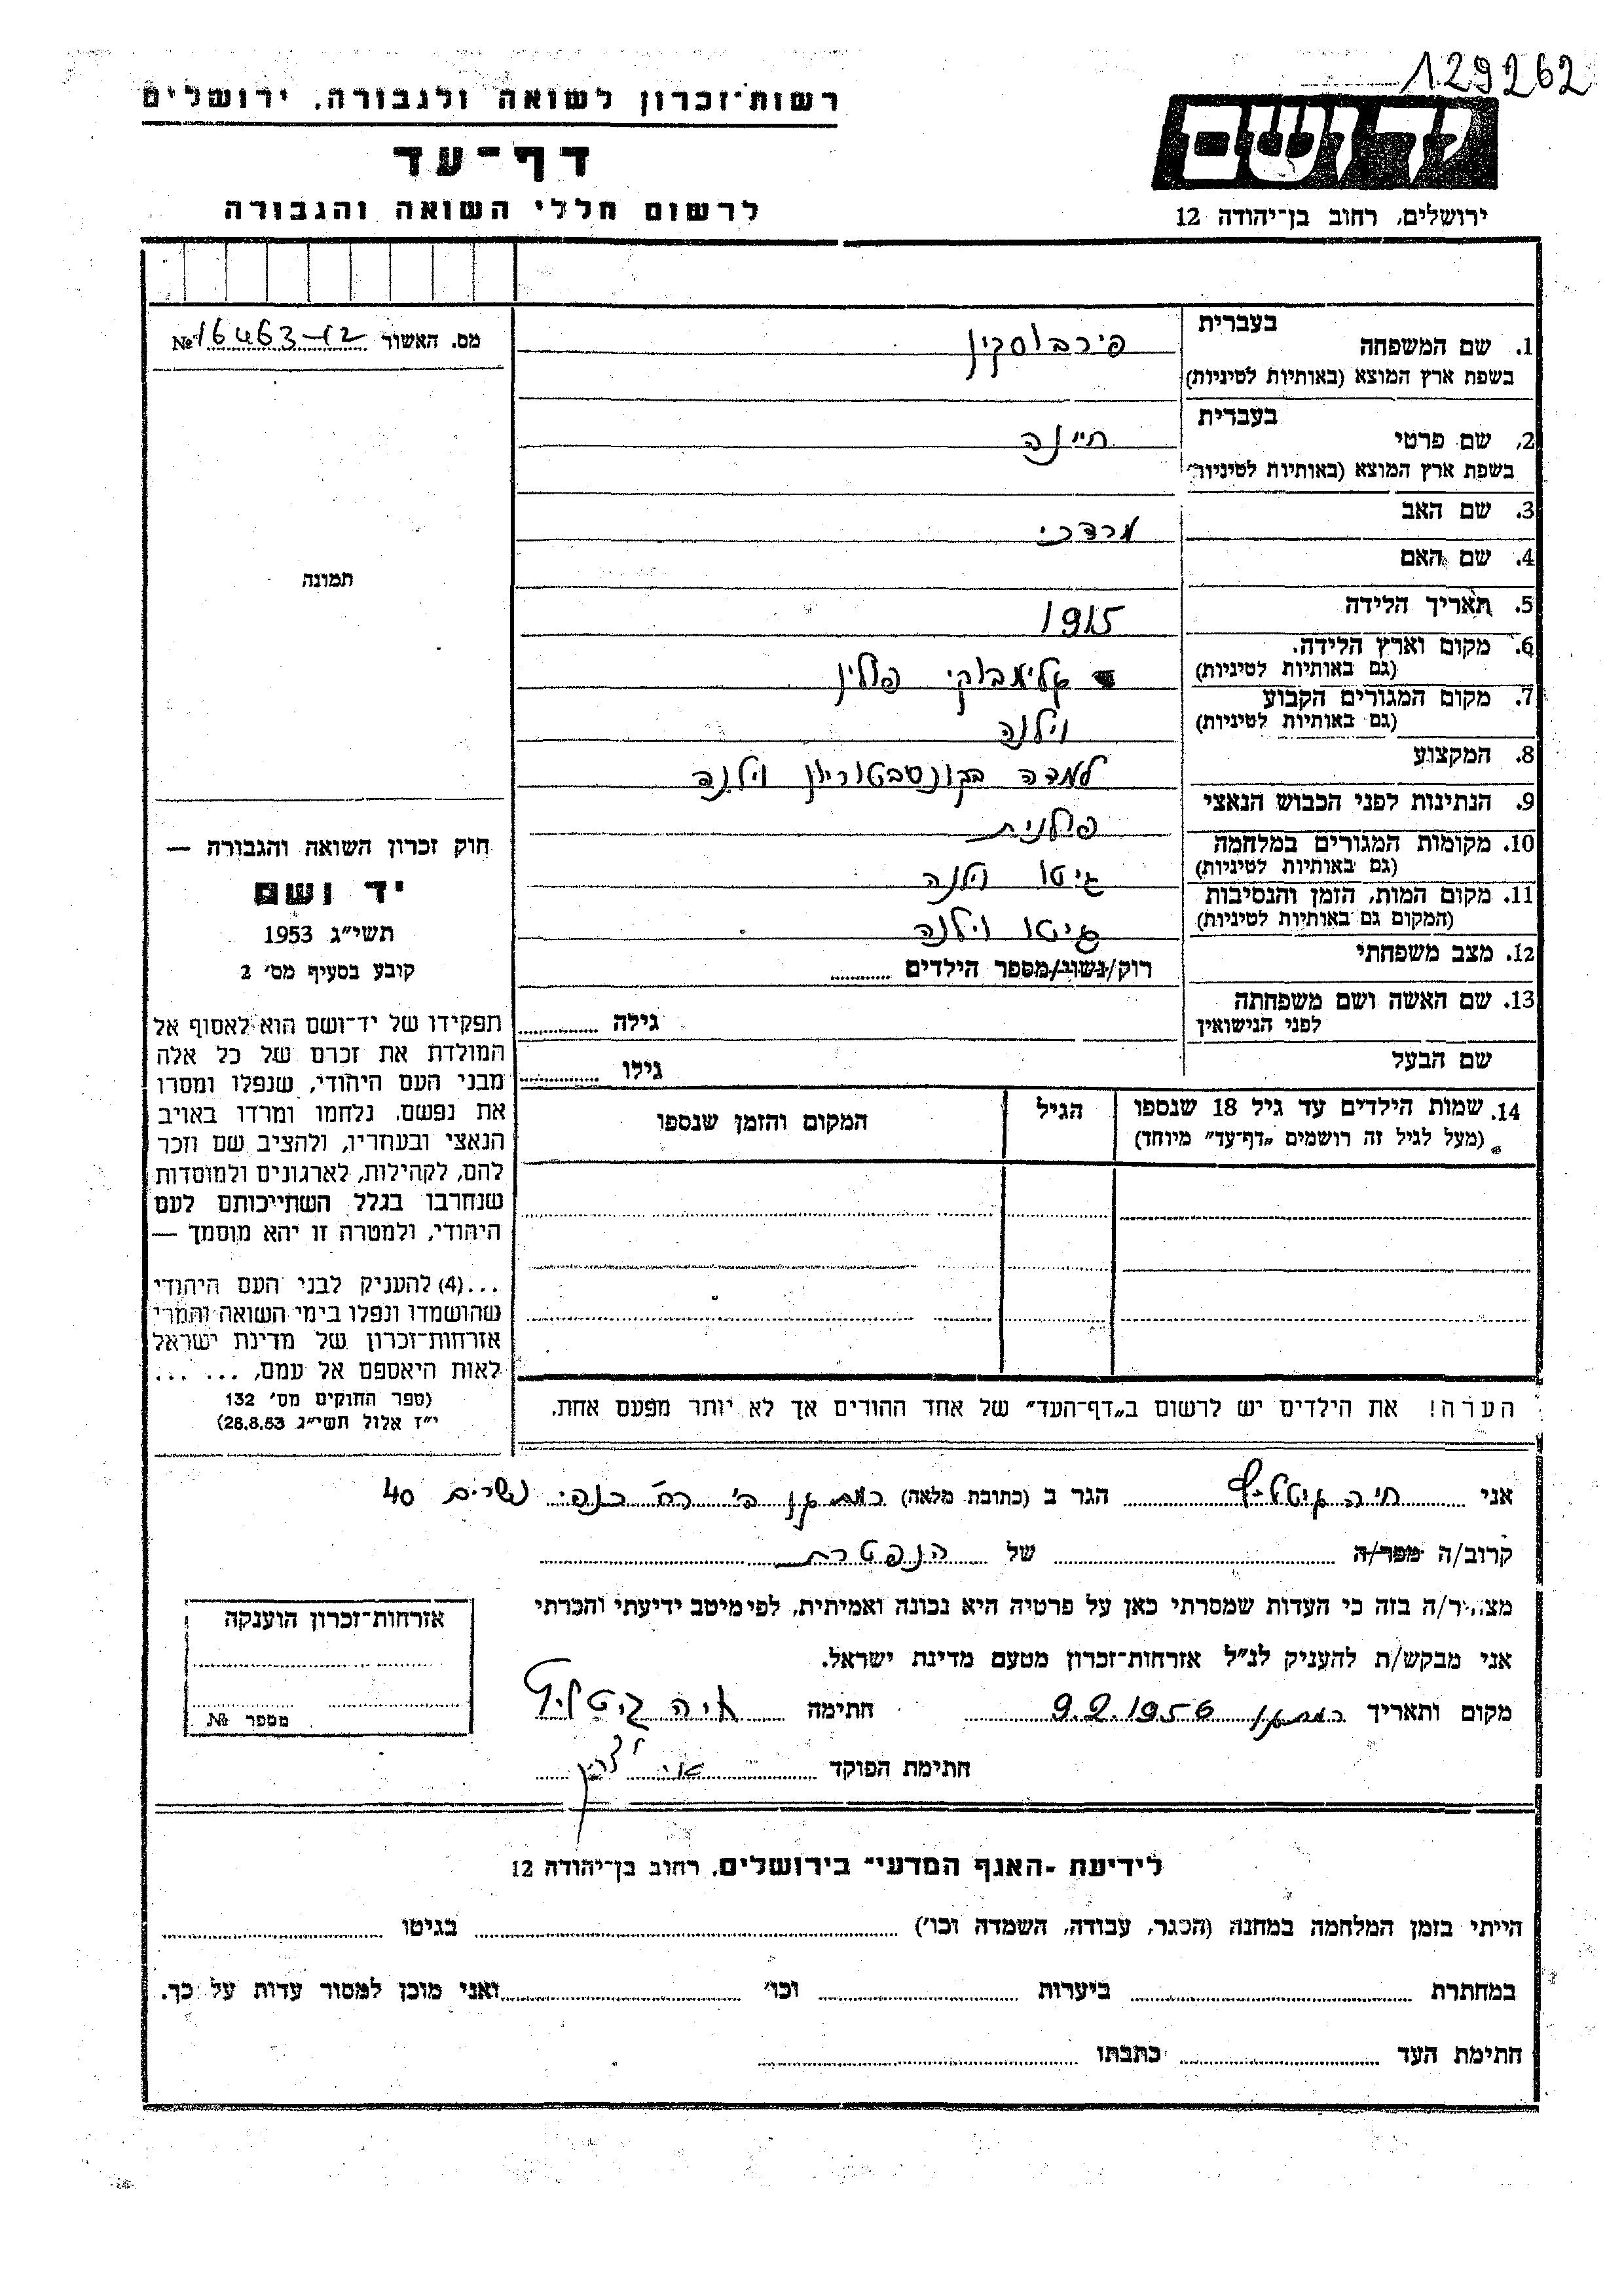 129262
יד ושם
ירושלים, רחוב בן־יהודה 12
רשות־זכרון לשואה ולגבורה, ירושלים
דף־עד
לרשום חללי השואה והגבורה
מס. האשור №16463-12
בעברית
1. שם המשפחה פירבוסקין
בשפת ארץ המוצא (באותיות לטיניות)
בעברית
2. שם פרטי חיינה
בשפת ארץ המוצא (באותיות לטיניות)
3. שם האב מרדכי
4. שם האם
5. תאריך הלידה 1915
6. מקום וארץ הלידה. פולין
(גם באותיות לטיניות)
7. מקום המגורים הקבוע וילנה
(גם באותיות לטיניות)
8. המקצוע למדה בקונסבטוריון וילנה
9. הנתינות לפני הכבוש הנאצי פולנית
10. מקומות המגורים במלחמה גיטו וילנה
(גם באותיות לטיניות)
11. מקום המות, הזמן והנסיבות גיטו וילנה
(המקום גם באותיות לטיניות)
12. מצב משפחתי רוק/נשוי/מספר הילדים
13. שם האשה ושם משפחתה גילה
לפני הנישואין
שם הבעל גילו
14. שמות הילדים עד גיל 18 שנספו הגיל המקום והזמן שנספו
(מעל לגיל זה רושמים „דף־עד" מיוחד)
הערה! את הילדים יש לרשום ב„דף־העד" של אחד ההורים אך לא יותר מפעם אחת.
תמונה
חוק זכרון השואה והגבורה —
יד ושם
תשי״ג 1953
קובע בסעיף מס׳ 2
תפקידו של יד־ושם הוא לאסוף אל
המולדת את זכרם של כל אלה
מבני העם היהודי, שנפלו ומסרו
את נפשם, נלחמו ומרדו באויב
הנאצי ובעוזריו, ולהציב שם וזכר
להם, לקהילות, לארגונים ולמוסדות
שנחרבו בגלל השתייכותם לעם
היהודי, ולמטרה זו יהא מוסמך —
...(4) להעניק לבני העם היהודי
שהושמדו ונפלו בימי השואה והמרי
אזרחות־זכרון של מדינת ישראל
לאות היאספם אל עמם, ... ...
(ספר החוקים מס׳ 132
י״ז אלול תשי״ג 28.8.53)
אני חיה הגר ב (כתובת מלאה) רמת גן נשרים 40
קרוב/ה מכר/ה של הנפטרת
מצהיר/ה בזה כי העדות שמסרתי כאן על פרטיה היא נכונה ואמיתית, לפי מיטב ידיעתי והכרתי
אני מבקש/ת להעניק לנ״ל אזרחות־זכרון מטעם מדינת ישראל.
מקום ותאריך רמת גן 9.2.1956 חתימה
חתימת הפוקד
אזרחות־זכרון הוענקה
מספר №
לידיעת ־האגף המדעי־ בירושלים, רחוב בן־יהודה 12
הייתי בזמן המלחמה במחנה (הסגר, עבודה, השמדה וכו׳) בגיטו
במחתרת ביערות וכו׳ ואני מוכן למסור עדות על כך.
חתימת העד כתבתו